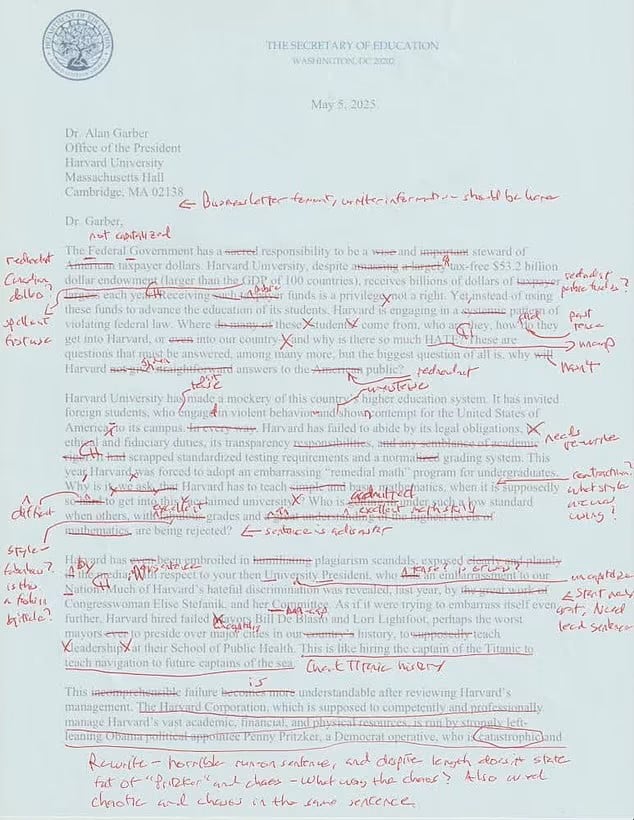 THE SECRETARY OF EDUCATION
WASHINGTON, DC 20202
May 5, 2025
Dr. Alan Garber
Office of the President
Harvard University
Massachusetts Hall
Cambridge, MA 02138
← Business letter format, writer information should be here
Dr. Garber,
not capitalized
The Federal Government has a sacred responsibility to be a wise and important steward of
American taxpayer dollars. Harvard University, despite amassing a largely tax-free $53.2 billion
dollar endowment (larger than the GDP of 100 countries), receives billions of dollars of taxpayer
largess each year. Receiving such funds is a privilege, not a right. Yet, instead of using
these funds to advance the education of its students. Harvard is engaging in a systemic pattern of
violating federal law. Where do many of these students come from, who are they, how do they
get into Harvard, or even into our country and why is there so much HATE? These are
questions that must be answered, among many more, but the biggest question of all is, why will
Harvard not give straightforward answers to the American public?
redundant
Canadian
dollars?
spell out
first use
redundist
public funds?
past
tense
uncap
won't
redundant
Harvard University has made a mockery of this country's higher education system. It has invited
foreign students, who engage in violent behavior and show contempt for the United States of
America, to its campus. In every way, Harvard has failed to abide by its legal obligations,
ethical and fiduciary duties, its transparency responsibilities, and any semblance of academic
rigor. had scrapped standardized testing requirements and a normalized grading system. This
year Harvard was forced to adopt an embarrassing "remedial math" program for undergraduates.
Why is it, we ask, that Harvard has to teach simple and basic mathematics, when it is supposedly
so hard to get into this acclaimed university? Who is under such a low standard
when others, with grades and a great understanding of the highest levels of
mathematics, are being rejected?
← sentence is a disaster
needs
rewrite
contraction?
what style
manual
using?
admitted
excellent
difficult
style -
fabulous?
is this
a fashion
critique?
Harvard has even been embroiled in humiliating plagiarism scandals, exposed clearly and plainly
in the media, with respect to your then University President, who an embarrassment to our
Nation. Much of Harvard's hateful discrimination was revealed, last year, by the great work of
Congresswoman Elise Stefanik, and her As if it were trying to embarrass itself even
further, Harvard hired failed Mayors Bill De Blasio and Lori Lightfoot, perhaps the worst
mayors ever to preside over major cities in our country's history, to supposedly teach
"leadership" at their School of Public Health. This is like hiring the captain of the Titanic to
teach navigation to future captains of the sea.
Check Titanic history
uncapitalize
← start new
graf. Need
lead sentence
is
This incomprehensible failure becomes more understandable after reviewing Harvard's
management. The Harvard Corporation, which is supposed to competently and professionally
manage Harvard's vast academic, financial, and physical resources, is run by strongly left-
leaning Obama political appointee Penny Pritzker, a Democrat operative, who is catastrophic and
Rewrite - horrible run on sentence, and despite length doesn't state
of "Pritzker" and chaos - What was the chaos? Also avoid
chaotic and chaos in the same sentence.